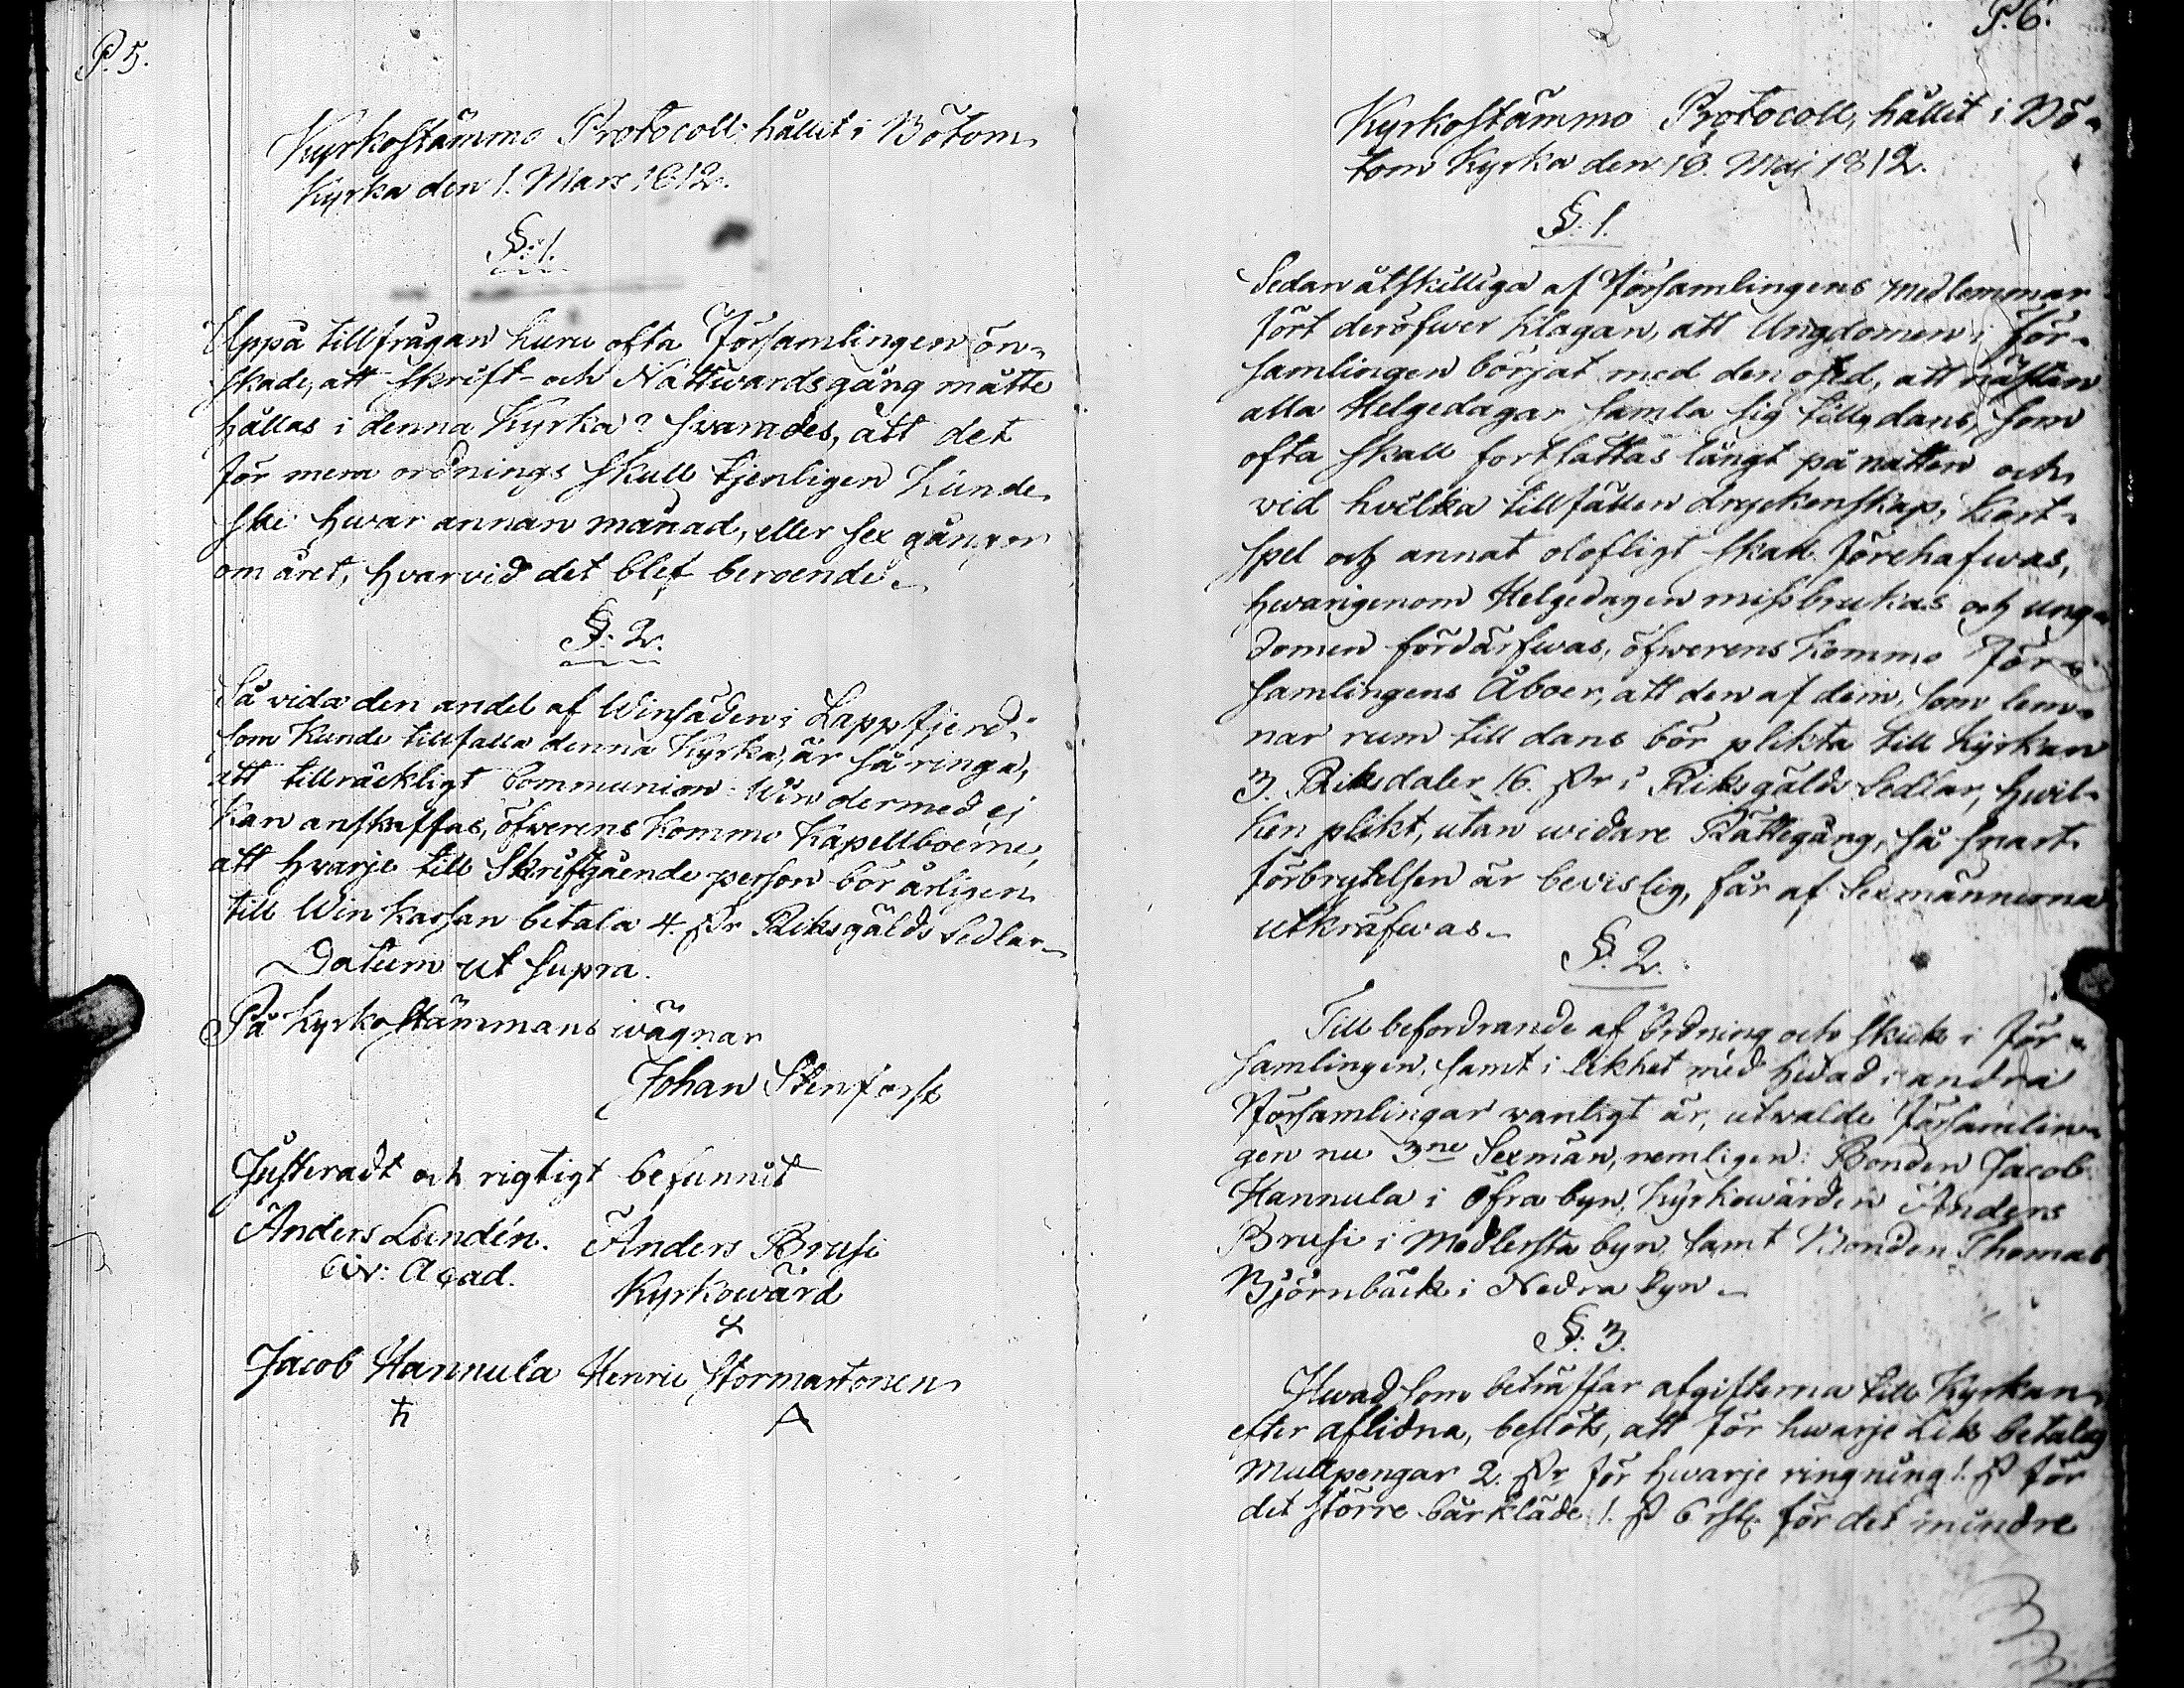 P. 5.
Kyrkostämmo Protocoll, hållit i Bötom
Kyrka den 1. Mars 1812.
§. 1.
Uppå tillfrågan huru ofta Församlingen ön-
skade, att skrift- och Nattwardsgång måtte
hållas i denna Kyrka? swarades, att det
för mera ordnings skull tjenligen kunde
ske hwar annan månad, eller sex gånger
om året, hvarvid det blef beroende.
§. 2.
Så vida den andel af Winsäden i Lappfjerd,
som kunde tillfalla denna Kyrka, är så ringa,
att tillräckligt Communion Win dermed ej
kan anskaffas, öfwerens kommo Kapellboerne,
att hvarje till Skriftgående person bör årligen
till Win kassan betala 4. sk:r Riksgälds Sedlar
Datum ut supra.
På Kyrkostämmans wägnar
Johan Stenforss
Justeradt och rigtigt befunnit
Anders Lundén. Anders Brusi
Civ: Acad. Kyrkowärd
Jacob Hannula Henric Stormartonen
P. 6.
Kyrkostämmo Protocoll, hållit i Bö-
tom Kyrka den 18. Maj 1812.
§. 1.
Sedan åtskilliga af Församlingens medlemmar
fört deröfwer klagan, att Ungdomen i För-
samlingen börjat med den osed, att nästan
alla Helgedagar samla sig till dans, som
ofta skall fortsättas långt på natten och
vid hvilka tillfällen dryckenskap, kort-
spel och annat olofligt skall förehafwas,
hwarigenom Helgedagen missbrukas och ung-
domen fördärfwas, öfwerens kommo För-
samlingens Åboer, att den af dem, som lem-
nar rum till dans bör plikta till Kyrkan
3. Riksdaler 16. sk:r i Riksgälds Sedlar, hwil-
ken plikt, utan widare Rättegång, så snart
förbrytelsen är bevislig, får af Sexmännerna
utkräfwas.
§. 2.
Till befordrande af Ordning och skick i För-
samlingen, samt i likhet med hwad i andra
Församlingar wanligt är, utwalde Församlin-
gen nu 3ne Sexmän, nemligen: Bonden Jacob
Hannula i Öfra byn, Kyrkowärden Anders
Brusi i Medlersta byn, samt Bonden Thomas
Björnbäck i Nedra byn.
§. 3.
Hwad som beträffar afgifterna till Kyrkan
efter aflidna, beslöts, att för hwarje Lik betalas
Mullpengar 2. sk:r för hwarje ringning 1. sk för
det större bårkläde 1. sk 6 rst. för det mindre